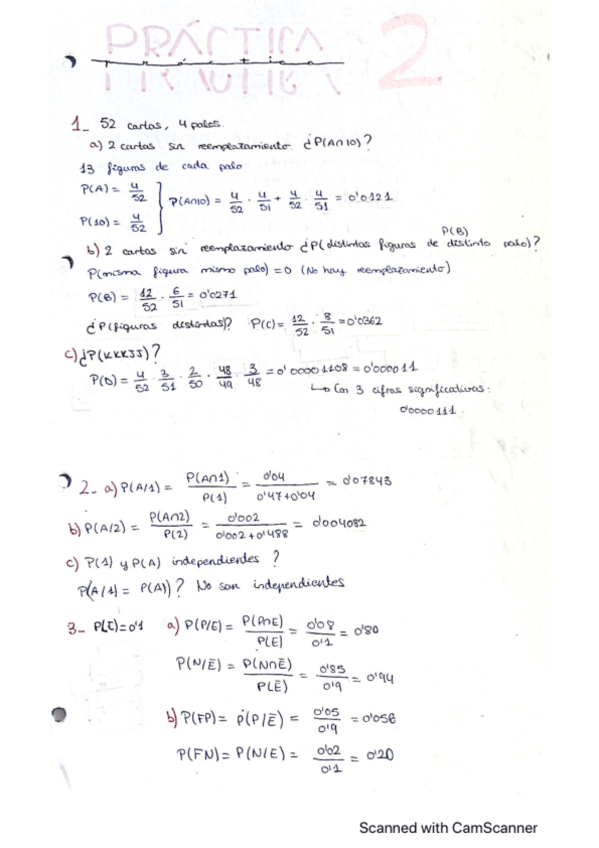 PRÁCTICA 2
práctica
1_ 52 cartas, 4 palos.
a) 2 cartas sin reemplazamiento. ¿P(A∩10)?
13 figuras de cada palo
P(A) = 4/52
P(10) = 4/52 } P(A∩10) = 4/52 · 4/51 + 4/52 · 4/51 = 0'0121
P(B)
b) 2 cartas sin reemplazamiento ¿P(distintas figuras de distinto palo)?
P(misma figura mismo palo) = 0 (No hay reemplazamiento)
P(B) = 12/52 · 6/51 = 0'0271
¿P(figuras distintas)? P(C) = 12/52 · 8/51 = 0'0362
c) ¿P(KKKJJ)?
P(D) = 4/52 · 3/51 · 2/50 · 48/49 · 3/48 = 0'00001108 = 0'000011
↳ Con 3 cifras significativas:
0'0000111.
2_ a) P(A/1) = P(A∩1)/P(1) = 0'04/0'47+0'04 = 0'07843
b) P(A/2) = P(A∩2)/P(2) = 0'002/0'002+0'488 = 0'004082
c) P(1) y P(A) independientes?
P(A/1) = P(A))? No son independientes
3_ P(E)=0'1 a) P(P/E) = P(P∩E)/P(E) = 0'08/0'1 = 0'80
P(N/Ē) = P(N∩Ē)/P(Ē) = 0'85/0'9 = 0'94
b) P(FP) = P(P/Ē) = 0'05/0'9 = 0'056
P(FN) = P(N/E) = 0'02/0'1 = 0'20
Scanned with CamScanner